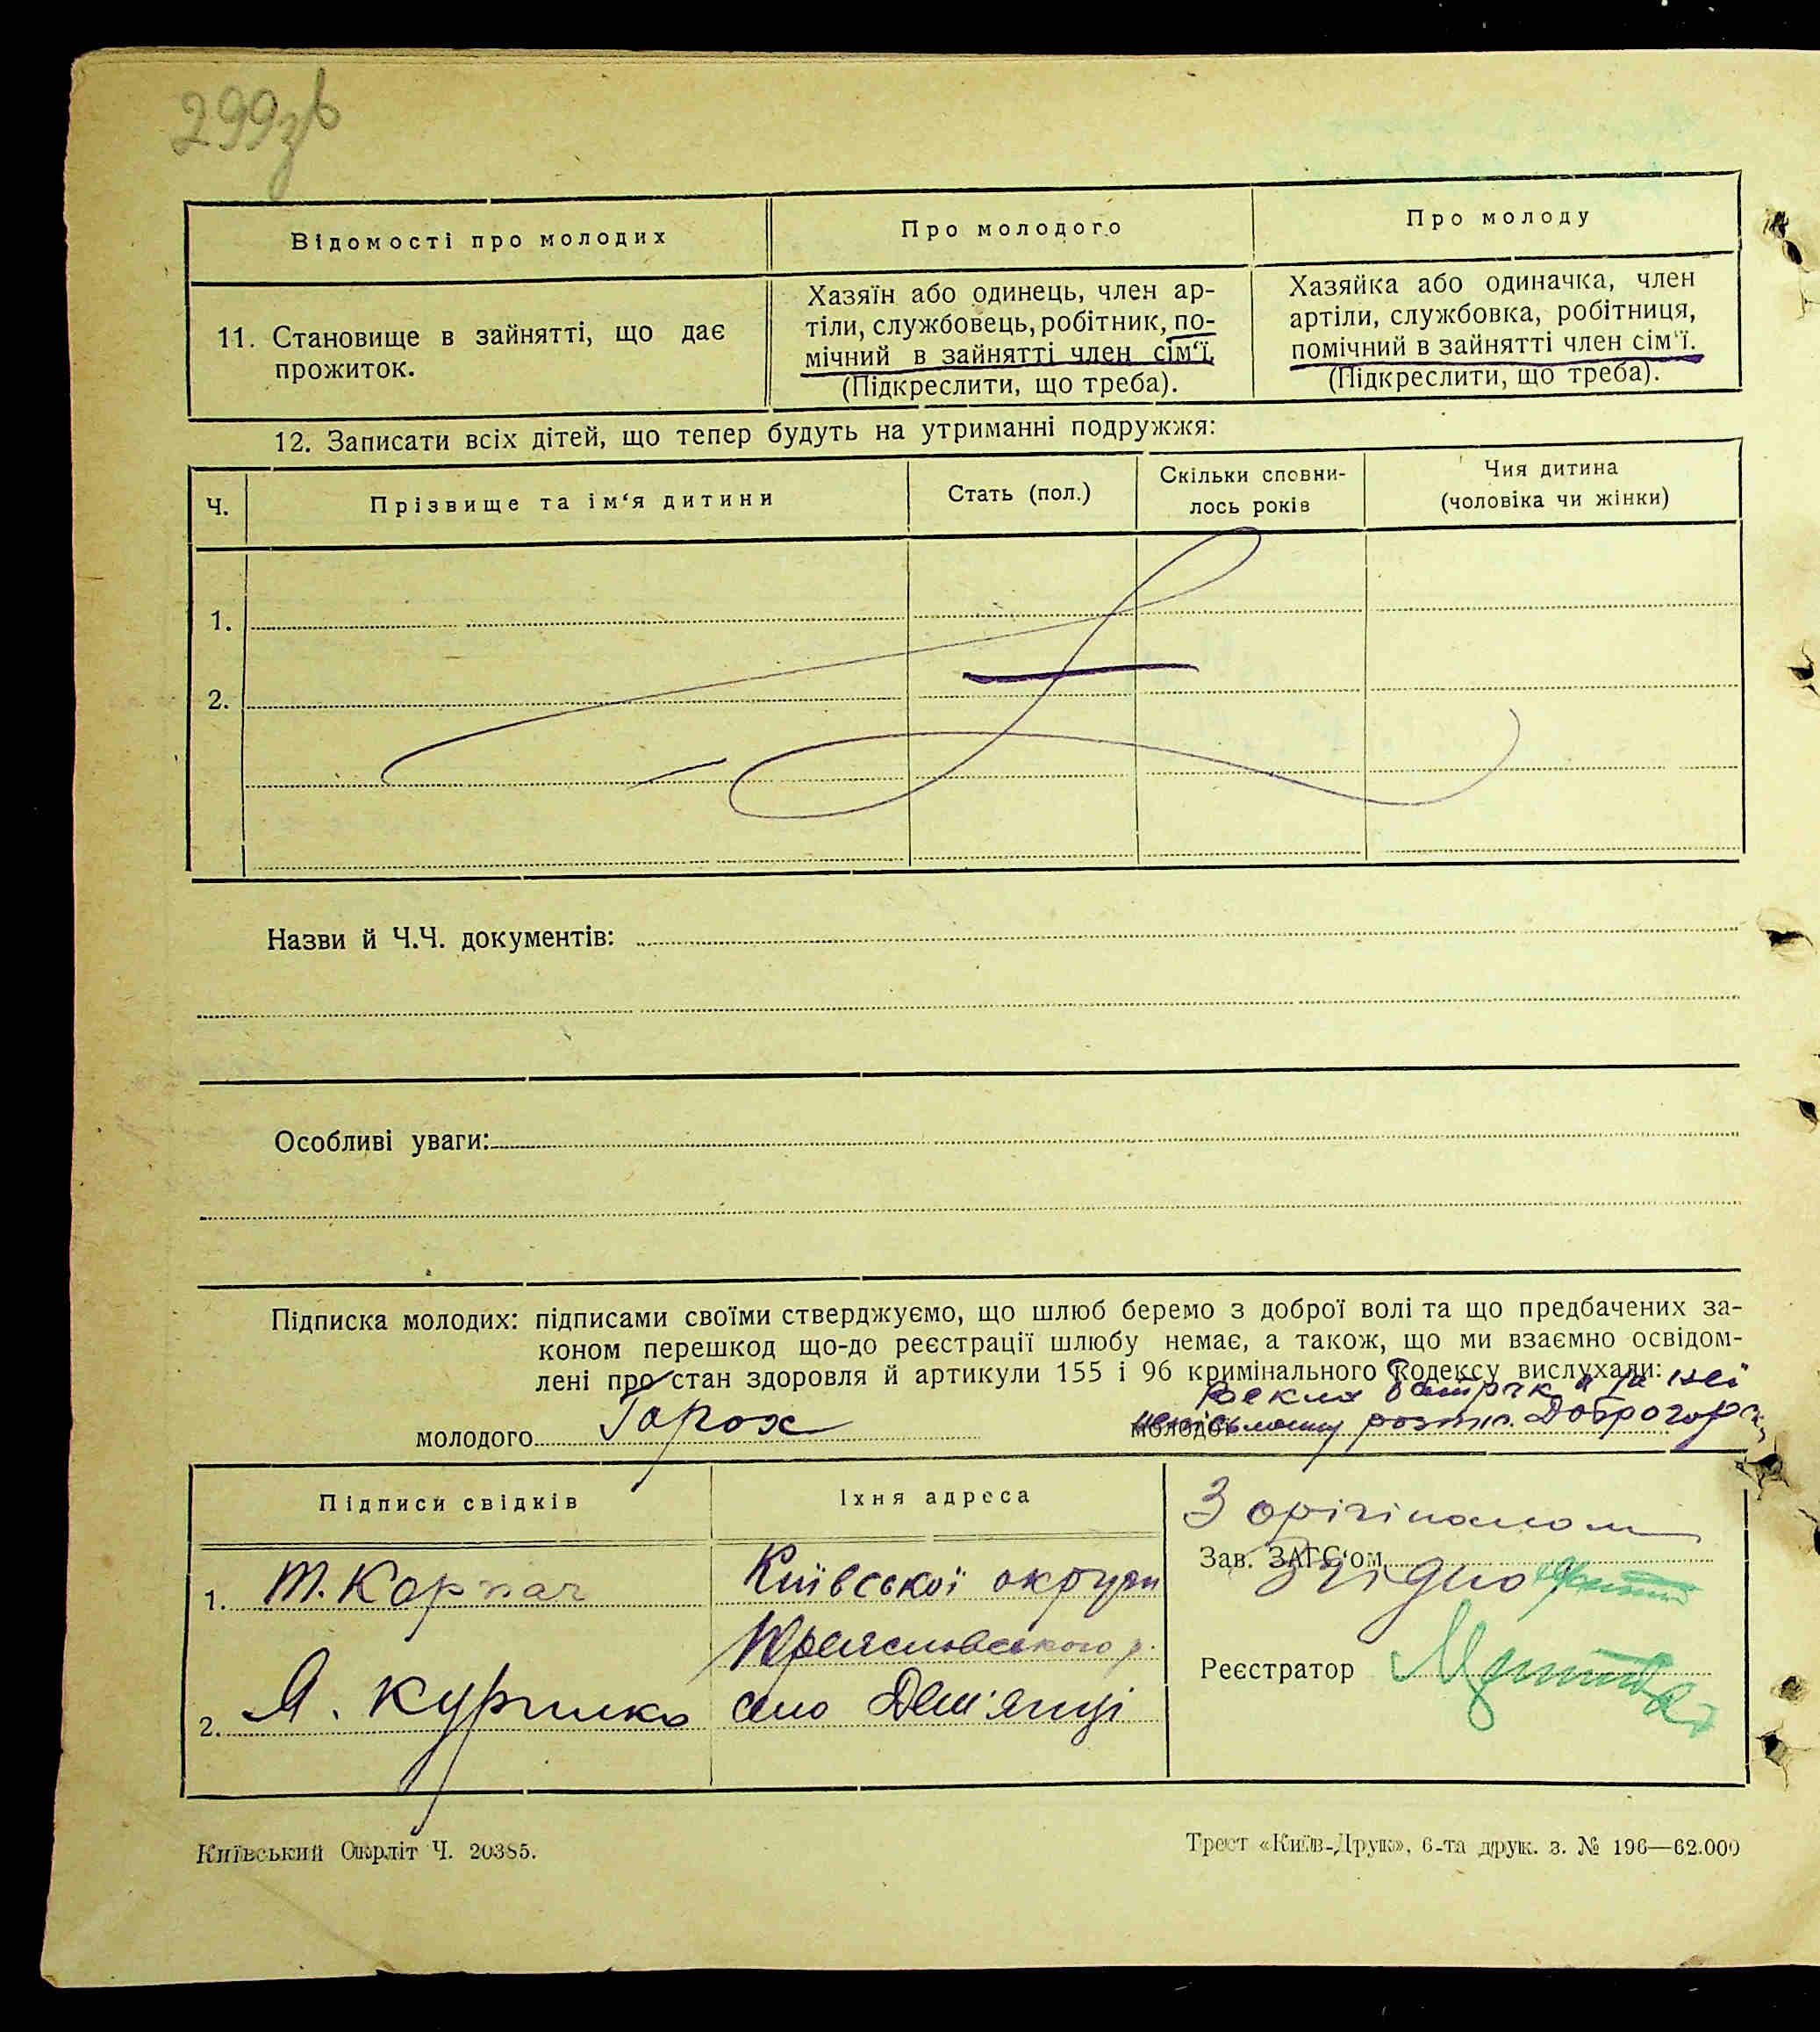 299зв
Відомості про молодих
Про молодого
Про молоду
11. Становище в зайнятті, що дає
прожиток.
Хазяїн або одинець, член ар-
тіли, службовець, робітник, по-
мічний в зайнятті член сім‘ї.
(Підкреслити, що треба).
Хазяйка або одиначка, член
артіли, службовка, робітниця,
помічний в зайнятті член сім‘ї.
(Підкреслити, що треба).
12. Записати всіх дітей, що тепер будуть на утриманні подружжя:
Ч.
Прізвище та ім‘я дитини
Стать (пол.)
Скільки сповни-
лось років
Чия дитина
(чоловіка чи жінки)
1.
2.
Назви й Ч.Ч. документів:
Особливі уваги:
Підписка молодих: підписами своїми стверджуємо, що шлюб беремо з доброї волі та що предбачених за-
коном перешкод що-до реєстрації шлюбу немає, а також, що ми взаємно освідом-
лені про стан здоровля й артикули 155 і 96 кримінального Кодексу вислухали:
за неї
молодого Горох
молодої
Підписи свідків
Їхня адреса
З орігіналом
Зав. ЗАГС‘ом
згідно
1. Т. Корпач
Київської округи
2. Я. Курилко
село Дем'янці
Реєстратор
Київський Окрліт Ч. 20385.
Трест «Київ-Друк», 6-та друк. з. № 196—62.000